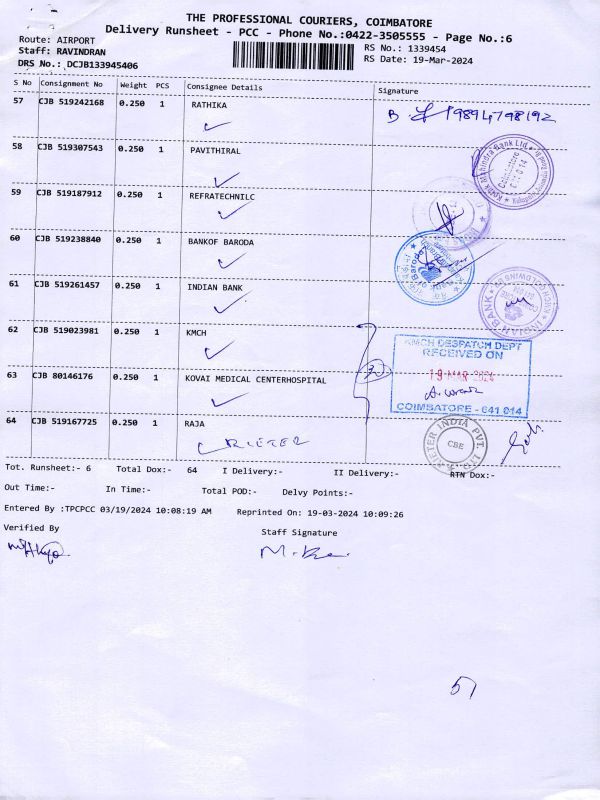 THE PROFESSIONAL COURIERS, COIMBATORE
Delivery Runsheet - PCC - Phone No.:0422-3505555 - Page No.:6
Route: AIRPORT
Staff: RAVINDRAN
DRS No.: DCJB133945406
RS No.: 1339454
RS Date: 19-Mar-2024
S No Consignment No Weight PCS Consignee Details Signature
57 CJB 519242168 0.250 1 RATHIKA
9894798192
58 CJB 519307543 0.250 1 PAVITHIRAL
Kotak Mahindra Bank Ltd.
59 CJB 519187912 0.250 1 REFRATECHNILC
60 CJB 519238840 0.250 1 BANKOF BARODA
61 CJB 519261457 0.250 1 INDIAN BANK
INDIAN BANK
62 CJB 519023981 0.250 1 KMCH
KMCH DESPATCH DEPT
RECEIVED ON
19 MAR 2024
COIMBATORE - 641 014
63 CJB 80146176 0.250 1 KOVAI MEDICAL CENTERHOSPITAL
64 CJB 519167725 0.250 1 RAJA
RIETER
RIETER INDIA PVT. LTD.
CBE
Tot. Runsheet:- 6 Total Dox:- 64 I Delivery:- II Delivery:- RTN Dox:-
Out Time:- In Time:- Total POD:- Delvy Points:-
Entered By :TPCPCC 03/19/2024 10:08:19 AM Reprinted On: 19-03-2024 10:09:26
Verified By
Staff Signature